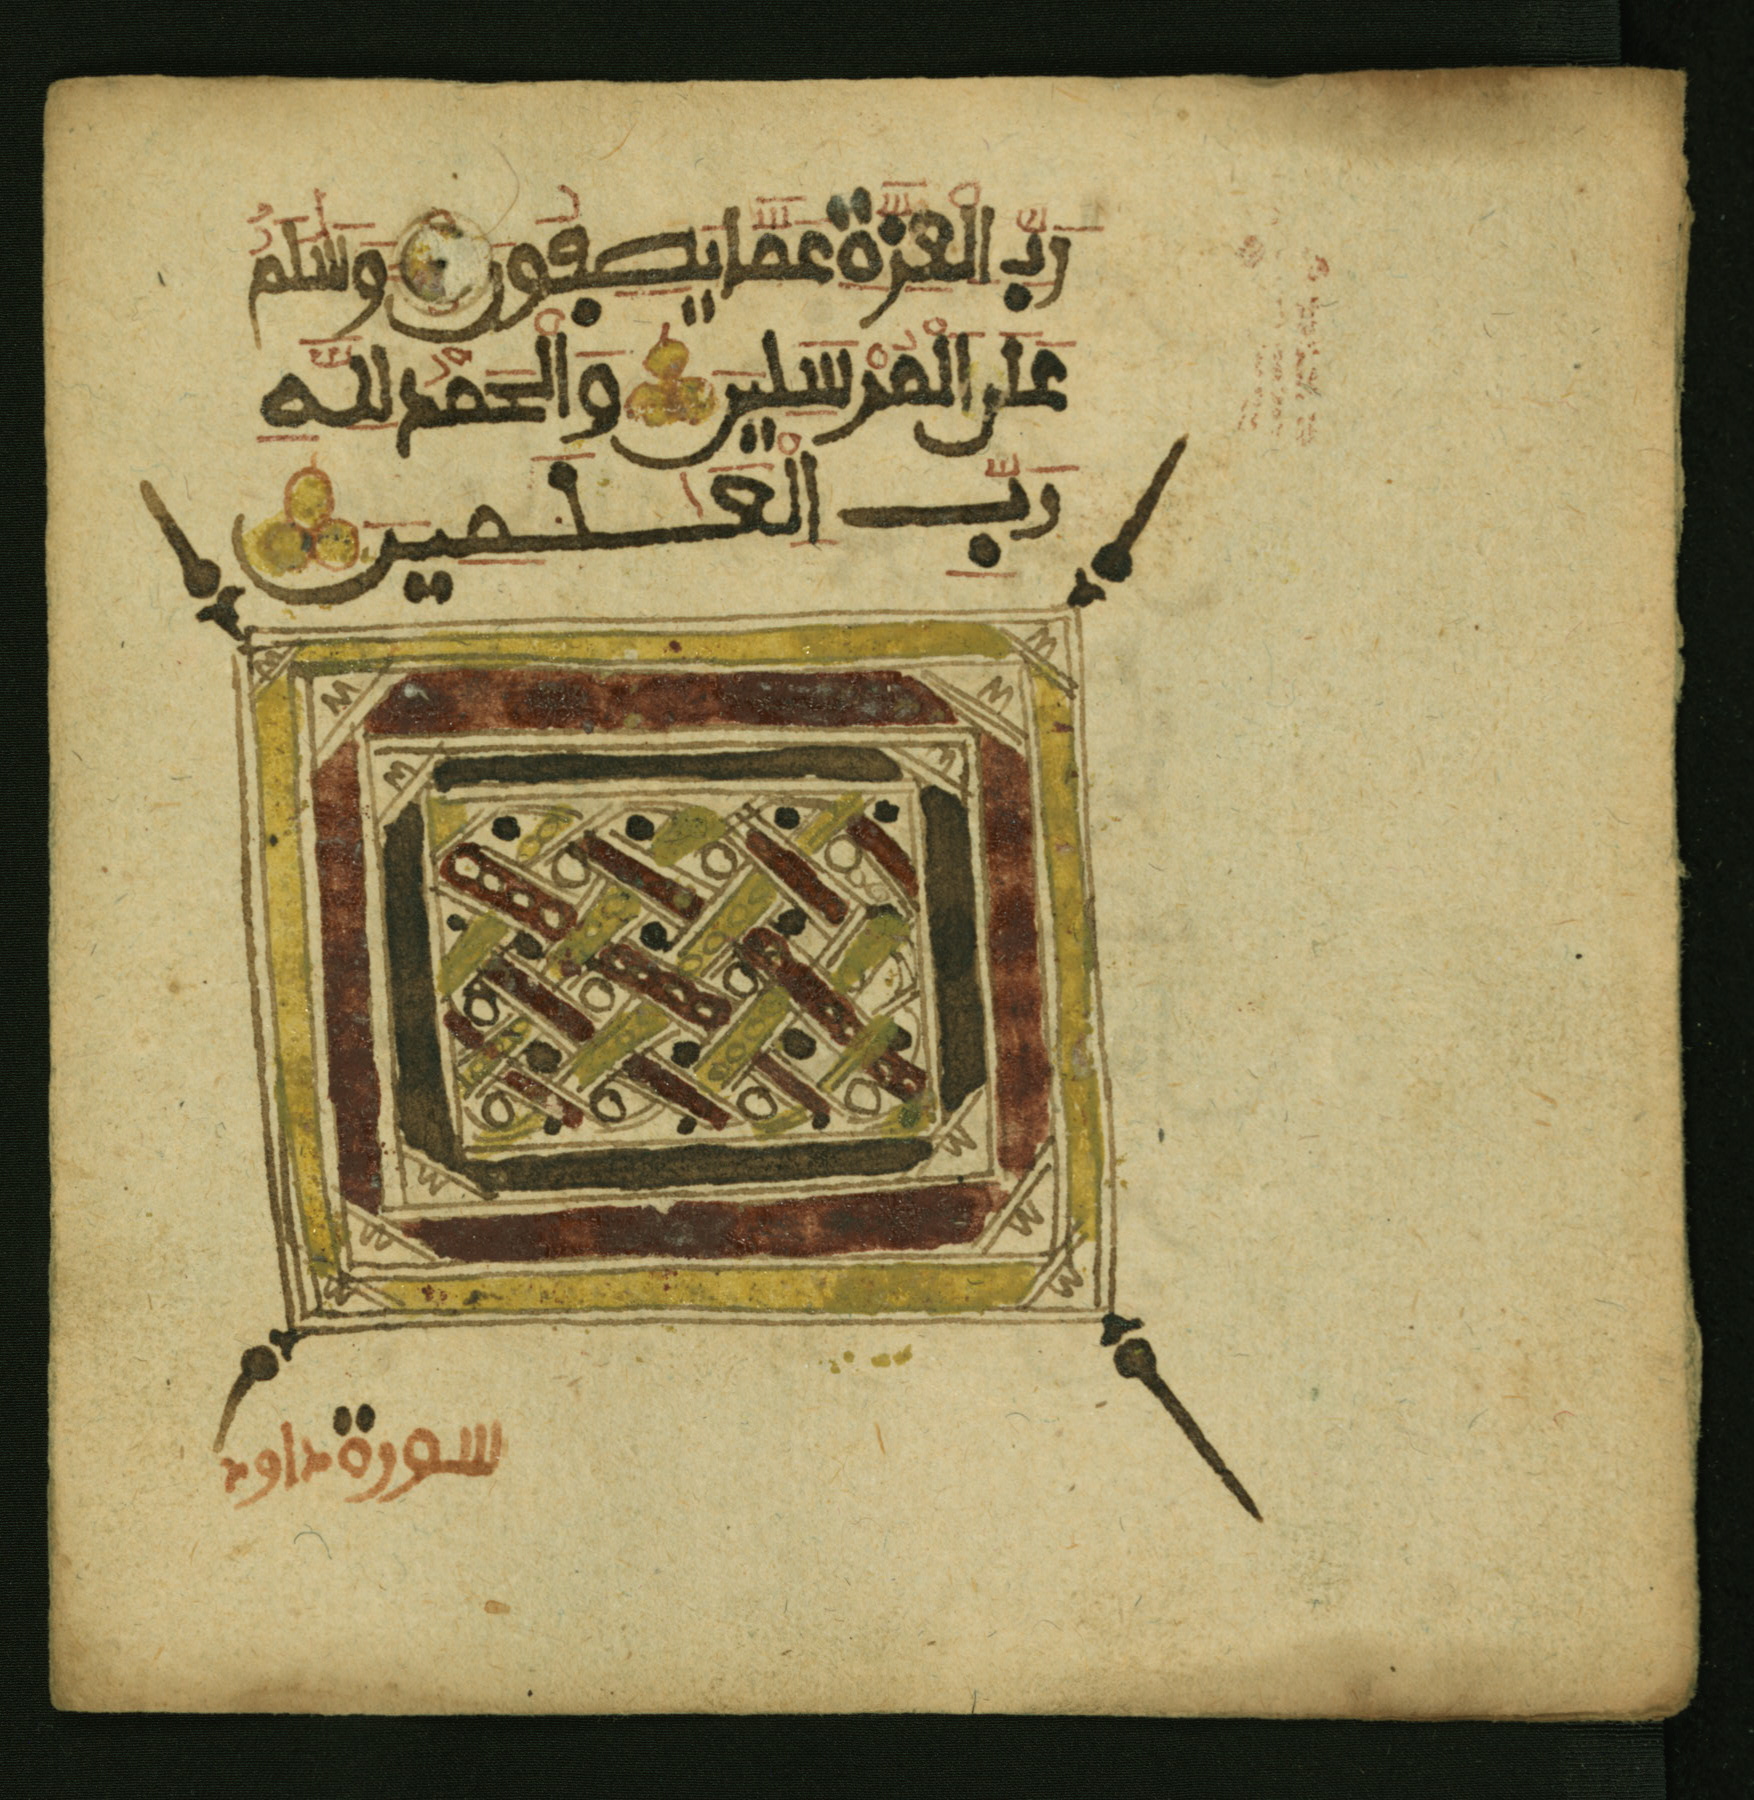 رَبِّ الْعِزَّةِ عَمَّا يَصِفُونَ وَسَلَٰمٌ
عَلَى الْمُرْسَلِينَ وَالْحَمْدُ لِلَّهِ
رَبِّ الْعَٰلَمِينَ
سورة داود